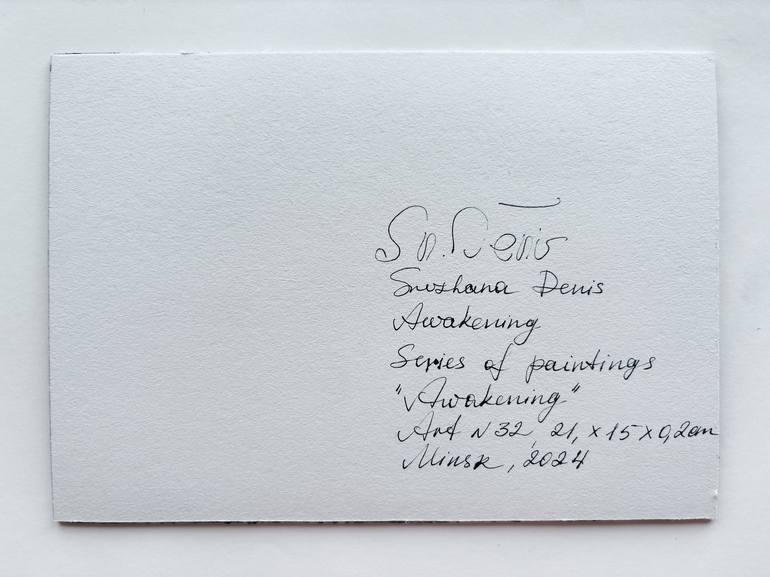 Sn. Denis
Snezhana Denis
Awakening
Series of paintings
"Awakening"
Art N32, 21, x 15 x 0,2cm
Minsk, 2024